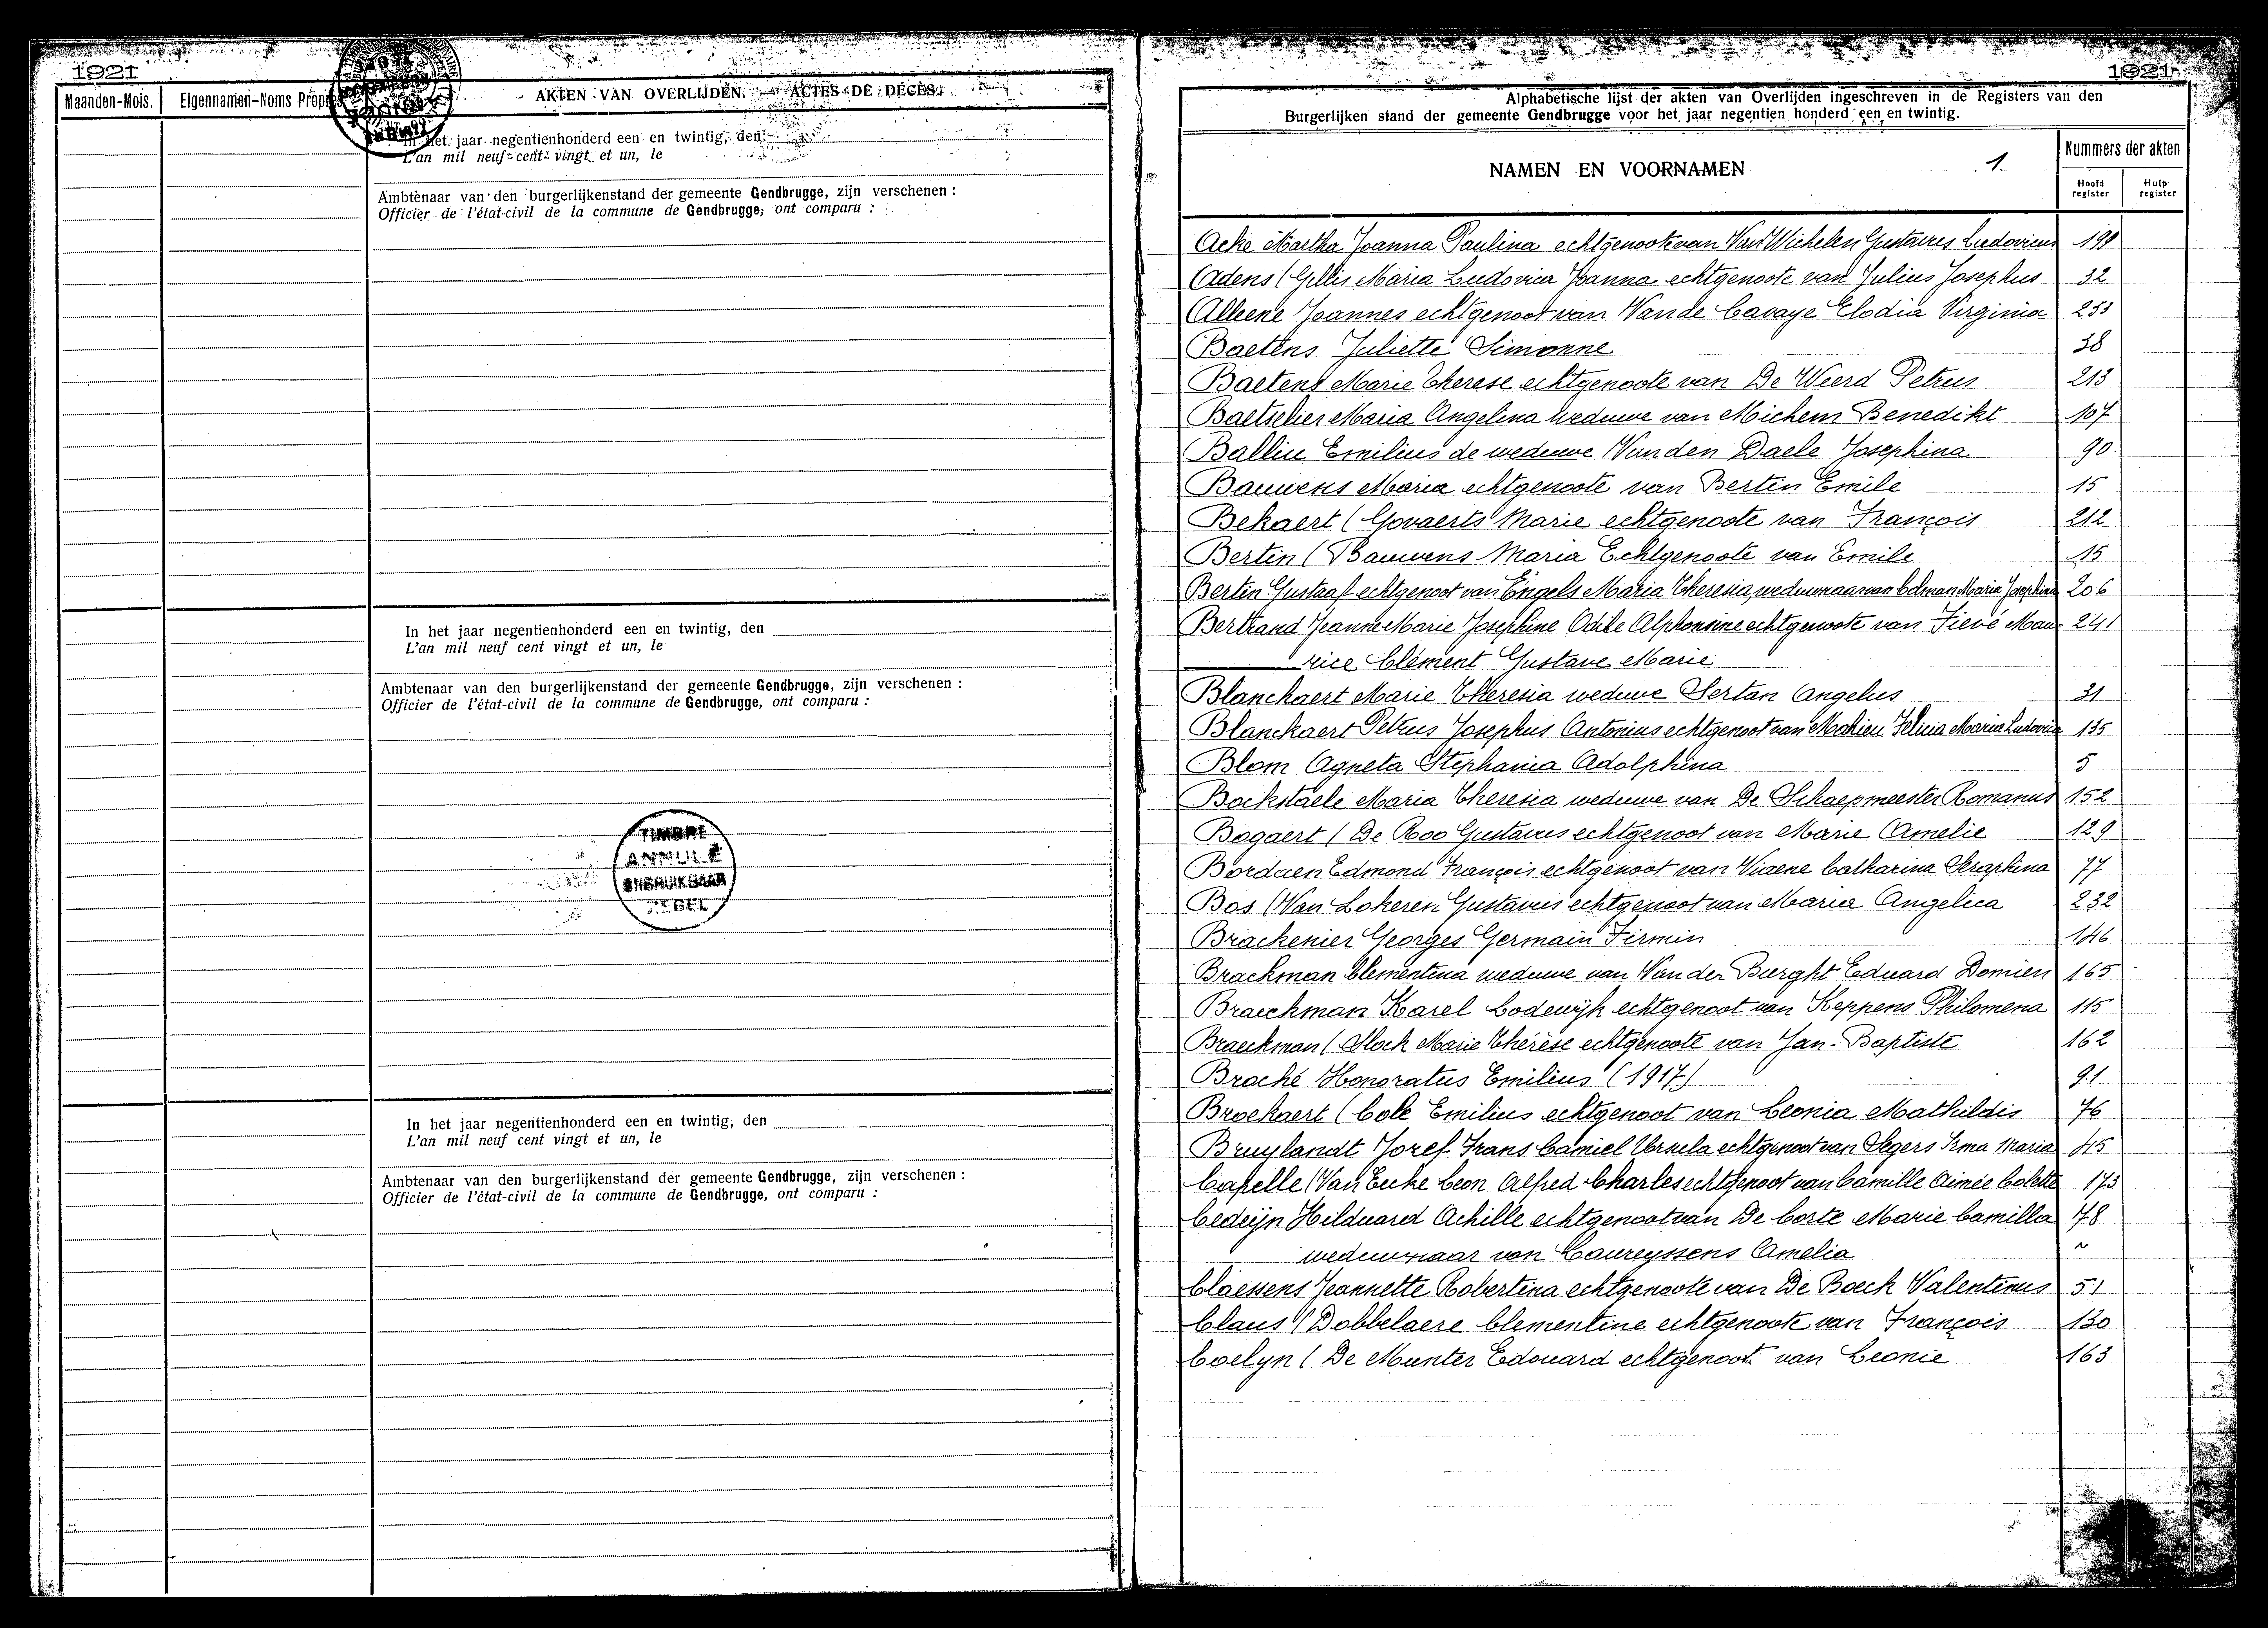 1921
Maanden-Mois. Eigennamen-Noms Propres
AKTEN VAN OVERLIJDEN. — ACTES DE DÉCÈS.
In het jaar negentienhonderd een en twintig, den
L'an mil neuf cent vingt et un, le
Ambtenaar van den burgerlijkenstand der gemeente Gendbrugge, zijn verschenen :
Officier de l'état-civil de la commune de Gendbrugge, ont comparu :
In het jaar negentienhonderd een en twintig, den
L'an mil neuf cent vingt et un, le
Ambtenaar van den burgerlijkenstand der gemeente Gendbrugge, zijn verschenen :
Officier de l'état-civil de la commune de Gendbrugge, ont comparu :
TIMBRE
ANNULÉ
ONBRUIKBAAR
ZEGEL
In het jaar negentienhonderd een en twintig, den
L'an mil neuf cent vingt et un, le
Ambtenaar van den burgerlijkenstand der gemeente Gendbrugge, zijn verschenen :
Officier de l'état-civil de la commune de Gendbrugge, ont comparu :
1921
Alphabetische lijst der akten van Overlijden ingeschreven in de Registers van den
Burgerlijken stand der gemeente Gendbrugge voor het jaar negentien honderd een en twintig.
NAMEN EN VOORNAMEN 1. Nummers der akten
Hoofd register Hulp register
Acke Martha Joanna Paulina echtgenoote van Van Wichelen Gustavus Ludovicus
Adens (Gillis Maria Ludovica Joanna echtgenoote van Julius Josephus 32
Alleene Joannes echtgenoot van Van de Cavaye Elodia Virginia 253
Baetens Juliette Simonne 38
Baetens Marie Therese echtgenoote van De Weerd Petrus 213
Baetselier Maria Angelina weduwe van Michem Benedikt 107
Balliu Emilius de weduwe Van den Daele Josephina 90.
Bauwens Maria echtgenoote van Bertin Emile 15
Bekaert (Govaerts Marie echtgenoote van François 212
Bertin (Bauwens Maria Echtgenoote van Emile 15
Bertin Gustaaf echtgenoot van Engels Maria Theresia, weduwnaar van Colman Maria Josephina 206
Bertrand Jeanne Marie Josephine Odile Alphonsine echtgenoote van Fievé Mau- 241
rice Clément Gustave Marie
Blanckaert Marie Theresia weduwe Sertan Angelus 31
Blanckaert Petrus Josephus Antonius echtgenoot van Mahieu Felicia Maria Ludovica 135
Blom Agneta Stephania Adolphina 5
Bockstaele Maria Theresia weduwe van De Schaepmeester Romanus 152
Bogaert (De Roo Gustavus echtgenoot van Marie Amelie 129
Bordaen Edmond François echtgenoot van Viaene Catharina Seraphina 77
Bos (Van Lokeren Gustavus echtgenoot van Maria Angelica 232
Brackenier Georges Germain Firmin 146
Brackman Clementina weduwe van Van der Burght Eduard Domien 165
Braeckman Karel Lodewijk echtgenoot van Keppens Philomena 115
Braeckman (Slock Marie Thérèse echtgenoote van Jan-Baptiste 162
Broché Honoratus Emilius (1917) 91
Broekaert (Cole Emilius echtgenoot van Leonia Mathildis 76
Bruylandt Jozef Frans Camiel Ursula echtgenoot van Segers Irma Maria 45
Capelle (Van Eecke Leon Alfred Charles echtgenoot van Camille Aimée Colette 173
Cedeijn Hilduard Achille echtgenoot van De Corte Marie Camilla 78
weduwnaar van Laureyssens Amelia ~
Claessens Jeannette Robertina echtgenoote van De Boeck Valentinus 51
Claus (Dobbelaere Clementine echtgenoote van François 130
Coelyn (De Munter Edouard echtgenoot van Leonie 163